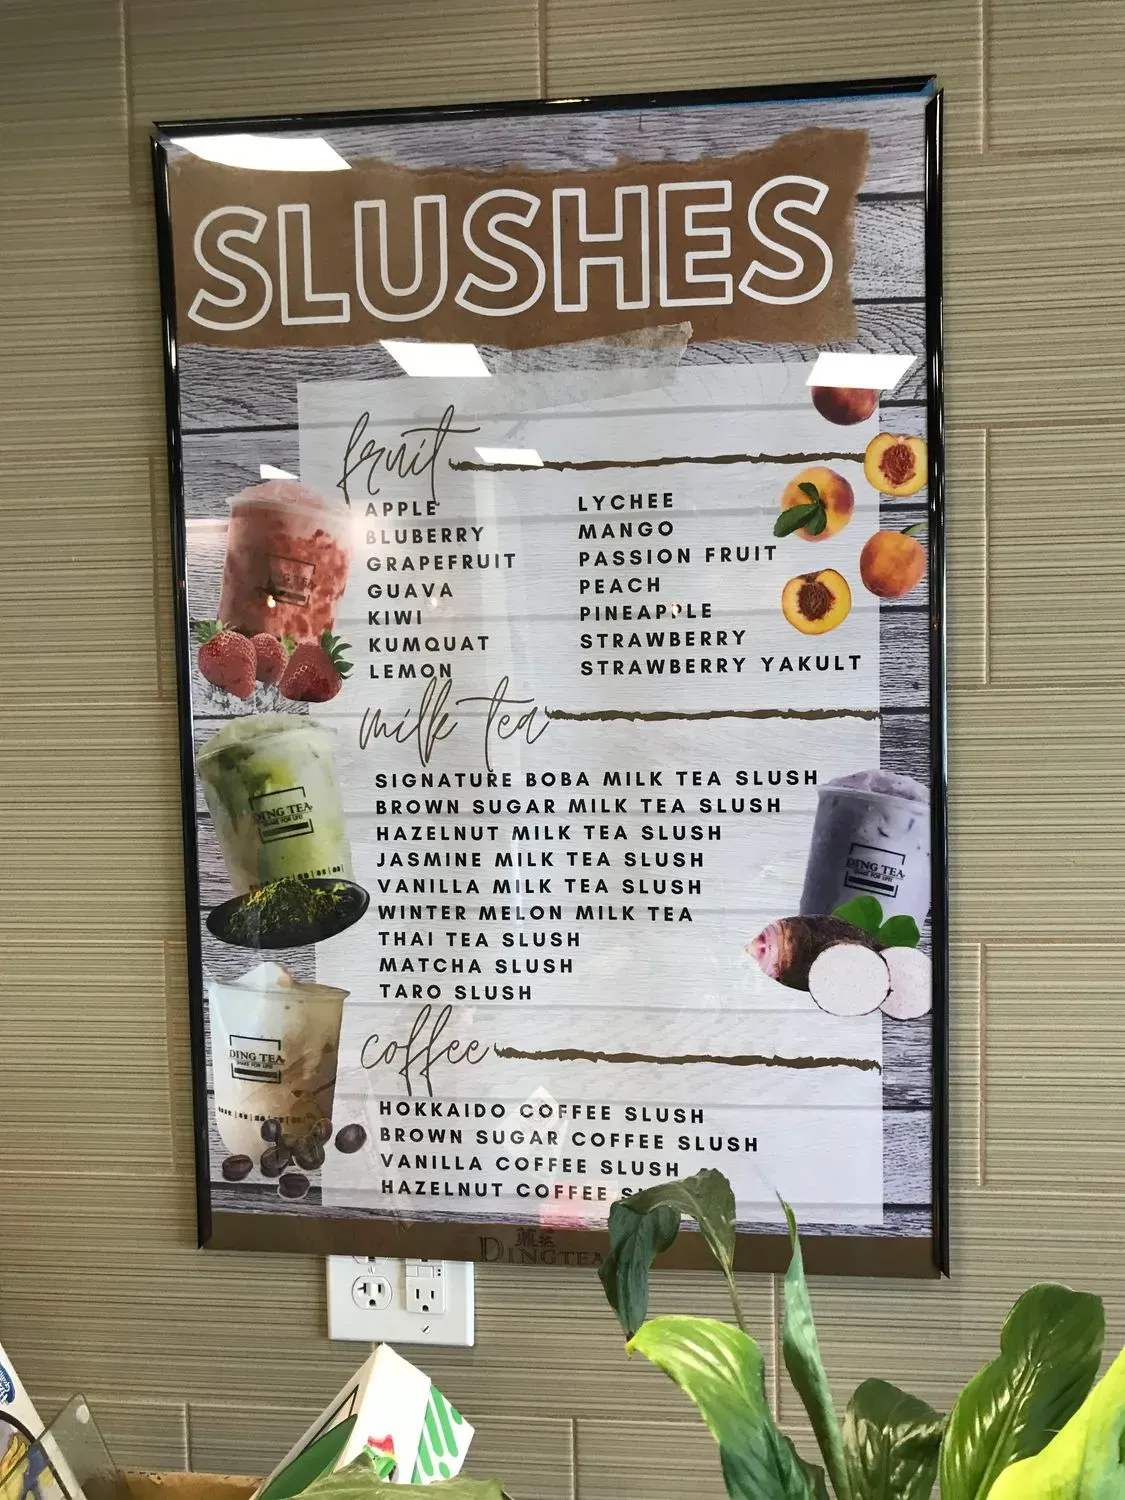 SLUSHES
fruit
APPLE
BLUBERRY
GRAPEFRUIT
GUAVA
KIWI
KUMQUAT
LEMON
LYCHEE
MANGO
PASSION FRUIT
PEACH
PINEAPPLE
STRAWBERRY
STRAWBERRY YAKULT
milk tea
SIGNATURE BOBA MILK TEA SLUSH
BROWN SUGAR MILK TEA SLUSH
HAZELNUT MILK TEA SLUSH
JASMINE MILK TEA SLUSH
VANILLA MILK TEA SLUSH
WINTER MELON MILK TEA
THAI TEA SLUSH
MATCHA SLUSH
TARO SLUSH
coffee
HOKKAIDO COFFEE SLUSH
BROWN SUGAR COFFEE SLUSH
VANILLA COFFEE SLUSH
HAZELNUT COFFEE
DING TEA
SHAKE FOR LIFE!
DING TEA
SHAKE FOR LIFE!
DING TEA
SHAKE FOR LIFE!
DINGTEA